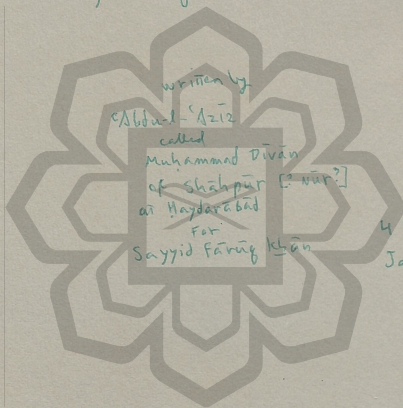 written by
ʿAbdu-l-ʿAzīz
called
Muḥammad Dīvān
of Shāhpūr [? nūr?]
at Ḥaydarābād
For
Sayyid Fārūq Khān
4
Ja